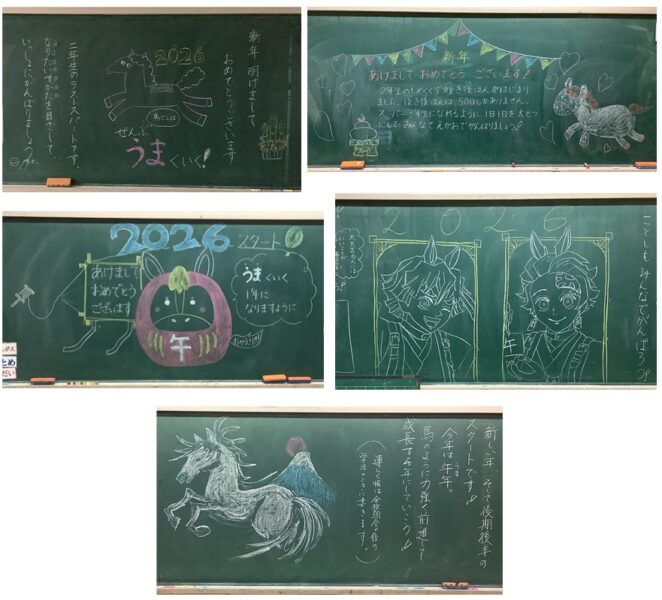 新年明けまして
おめでとうございます
2026
馬どしは
ぜんぶ
うまくいく!
二年生のラストスパートです。
なりたいすがたを目ざして、
いっしょにがんばりましょうね。
新年
あけまして おめでとう ございます!
2年生のしめくくりの後き後はんがはじまり
ました。後き後はんは、50日しかありません。
スーパー3年生になれるように、1日1日を大せつ
にして、みんなでえがおでがんばりましょう。
2026 スタート
あけまして
おめでとう
ございます
うまくいく
1年に
なりますように
午
おかえり
2026
ことしも みんなでがんばろう
午
新しい年、そして後期後半の
スタートです!
今年は午年。
うま
馬のように力強く前進して
成長する年にしていこう!